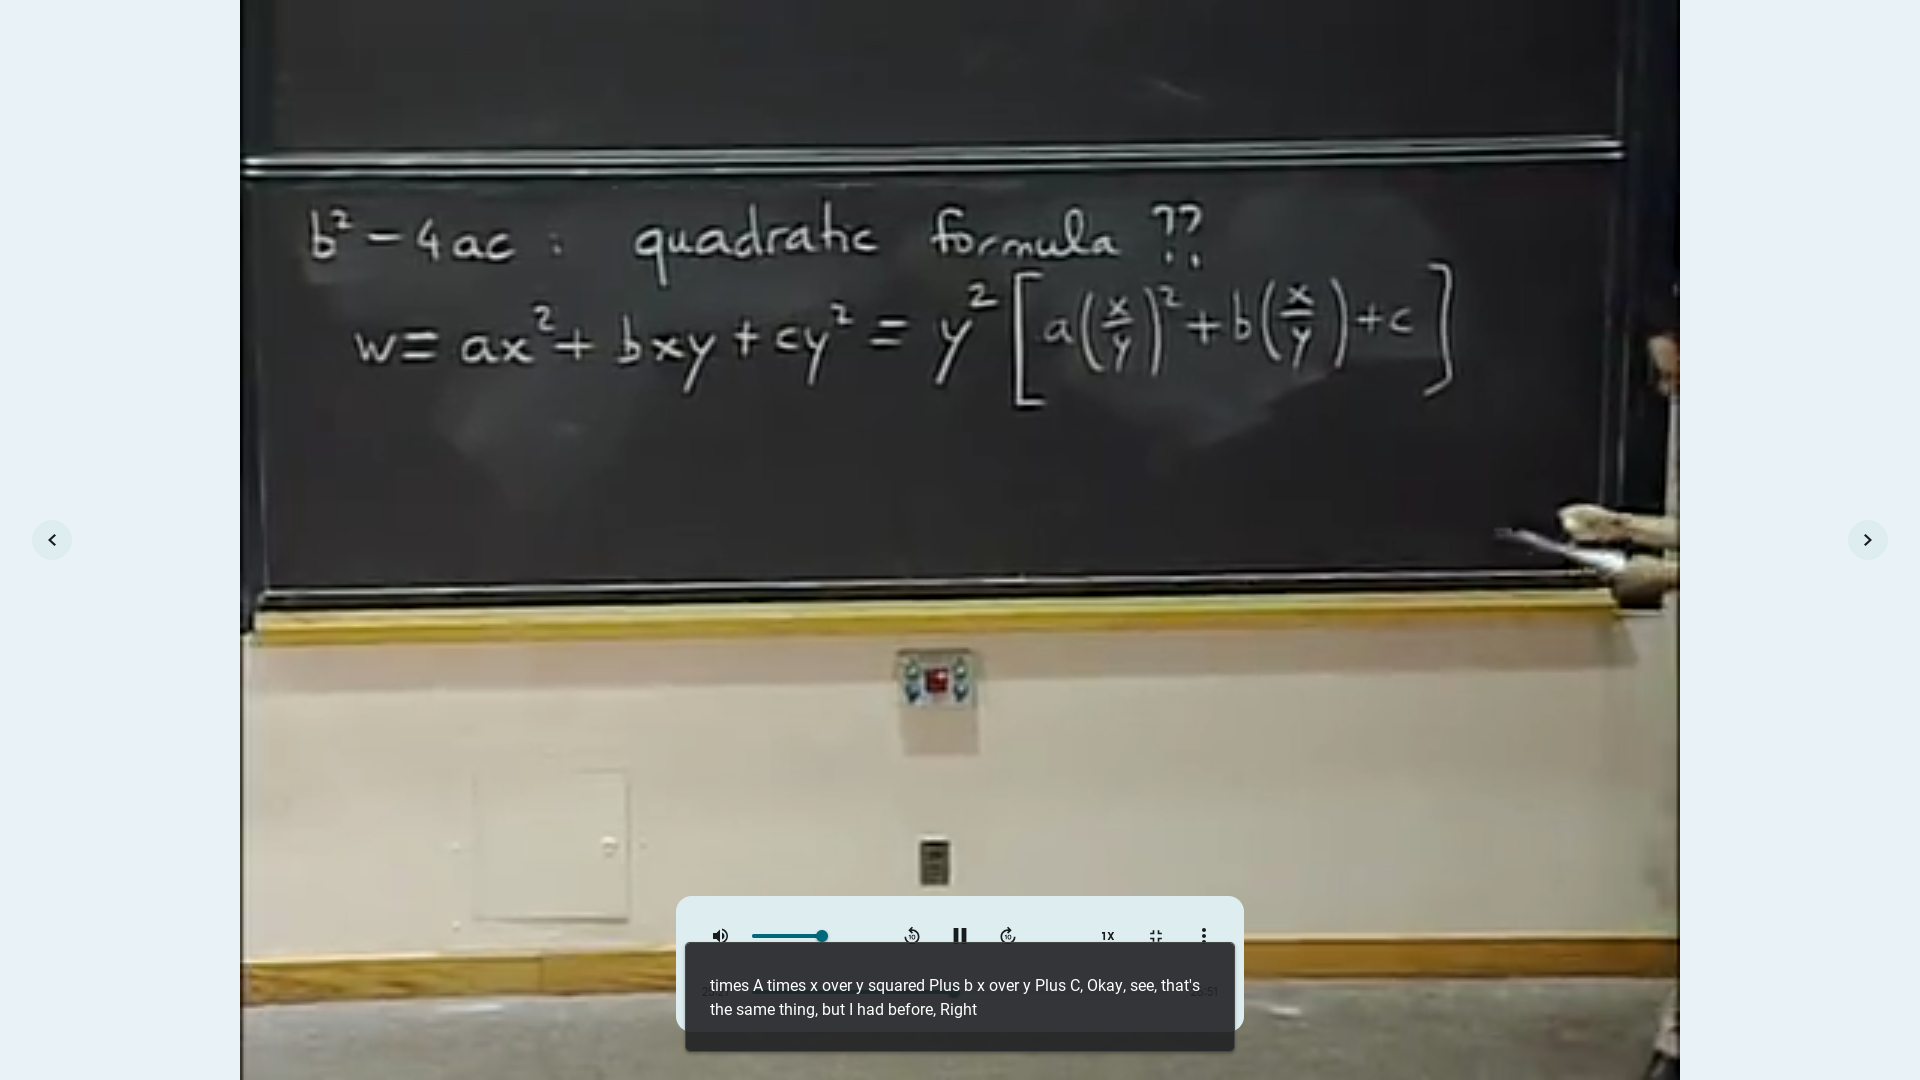 b² - 4ac : quadratic formula ??
w = ax² + bxy + cy² = y² [ a(x/y)² + b(x/y) + c ]
1X
times A times x over y squared Plus b x over y Plus C, Okay, see, that's
the same thing, but I had before, Right